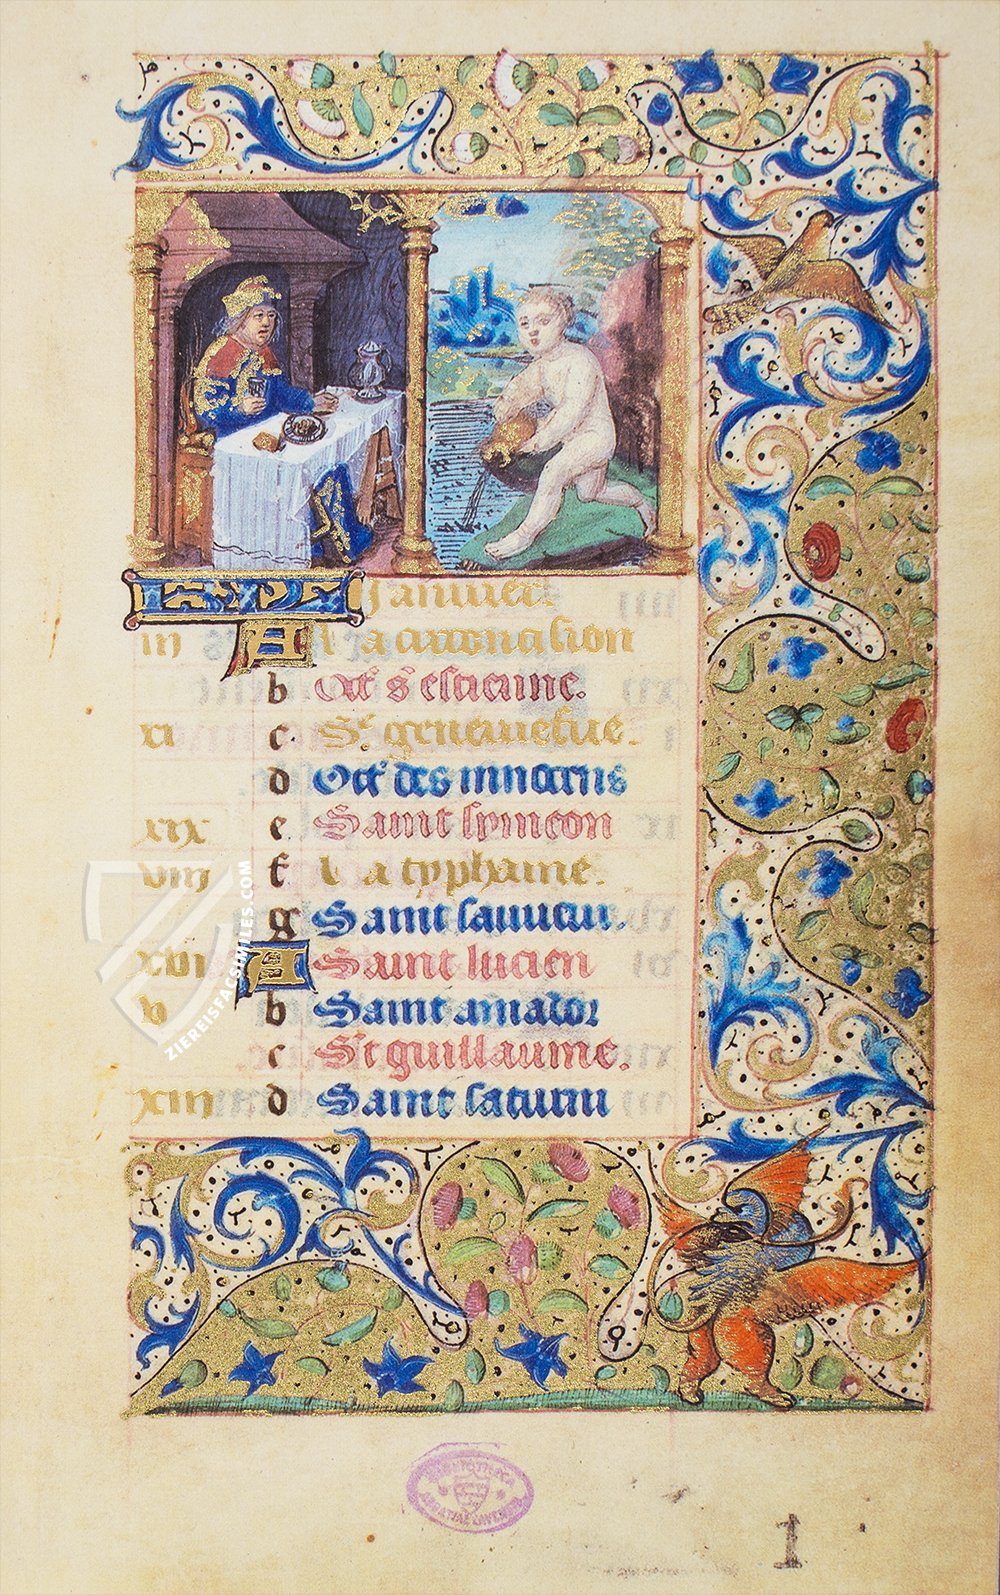 KL Januier.
iii A La circoncision
b Oct' s' estienne.
xi c S'e geneuiefue.
d Oct' des innocens
xix e Saint symeon
viii f La typhaine.
g Saint sauueur.
xvi A Saint lucien
v b Saint amator
c S't guillaume.
xiii d Saint saturni
ZIEREISFACSIMILES.COM
BIBLIOTHECA
1